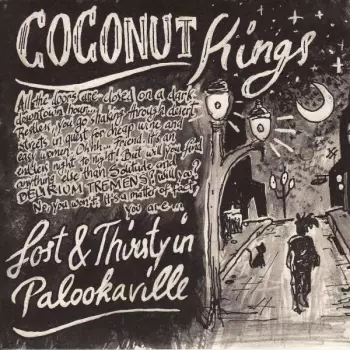 COCONUT Kings
All the doors are closed on a dark
downtown hour...
Restless, you go shaking through desert
streets in quest for cheap wine and
easy women. Ohhh... Friend, it's an
endless night to-night! But will you find
anything else than Solitude and
DELIRIUM TREMENS, will you?
No, You won't, it's a matter of fact,
You are...
Lost & Thirsty in
Palookaville